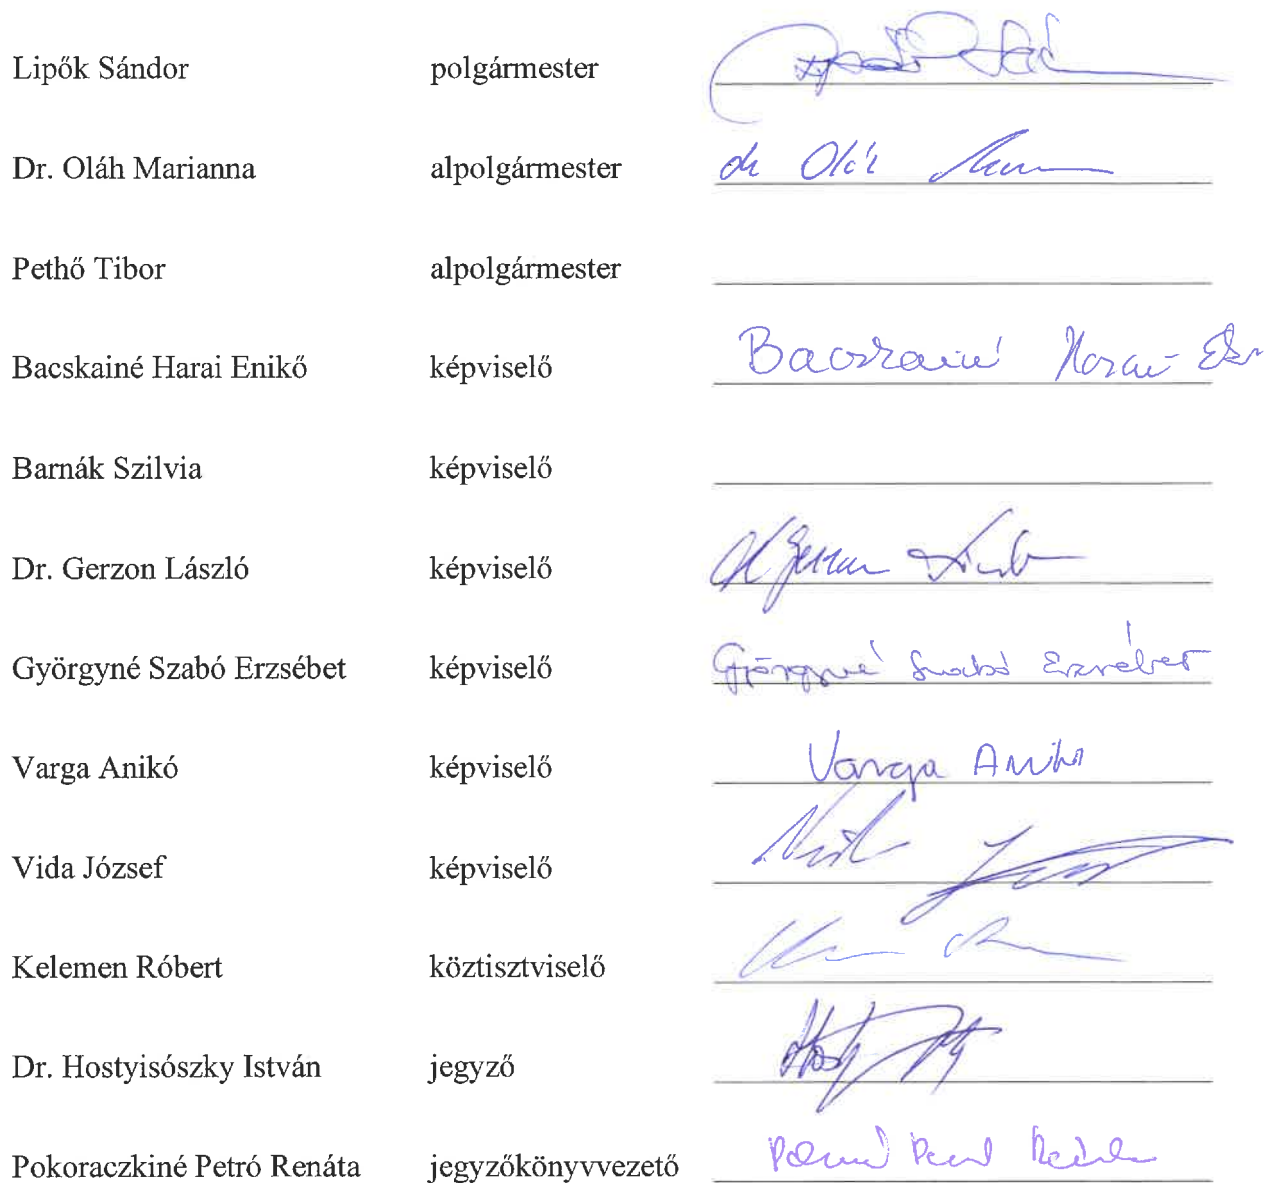 Lipők Sándor polgármester
Dr. Oláh Marianna alpolgármester dr Oláh
Pethő Tibor alpolgármester
Bacskainé Harai Enikő képviselő Bacskainé Harai
Barnák Szilvia képviselő
Dr. Gerzon László képviselő
Györgyné Szabó Erzsébet képviselő Györgyné Szabó Erzsébet
Varga Anikó képviselő Varga Anikó
Vida József képviselő
Kelemen Róbert köztisztviselő
Dr. Hostyisószky István jegyző
Pokoraczkiné Petró Renáta jegyzőkönyvvezető